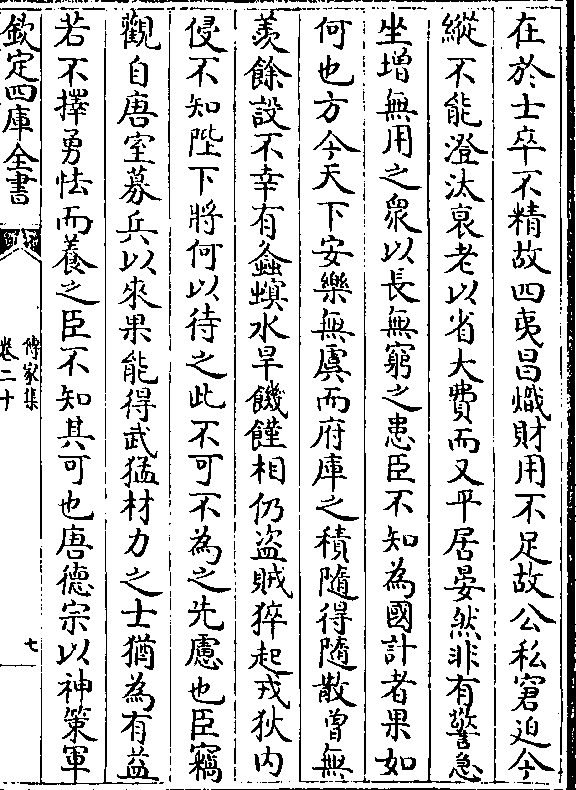 在於士卒不精故四夷昌熾財用不足故公私窘迫今
縱不能澄汰衰老以省大費而又平居晏然非有警急
坐增無用之衆以長無窮之患臣不知為國計者果如
何也方今天下安樂無虞而府庫之積隨得隨散曽無
羡餘設不幸有螽螟水旱饑饉相仍盗賊猝起戎狄内
侵不知陛下將何以待之此不可不為之先慮也臣竊
觀自唐室募兵以來果能得武猛材力之士猶為有益
若不擇勇怯而養之臣不知其可也唐德宗以神策軍
欽定四庫全書
傳家集
卷二十
七